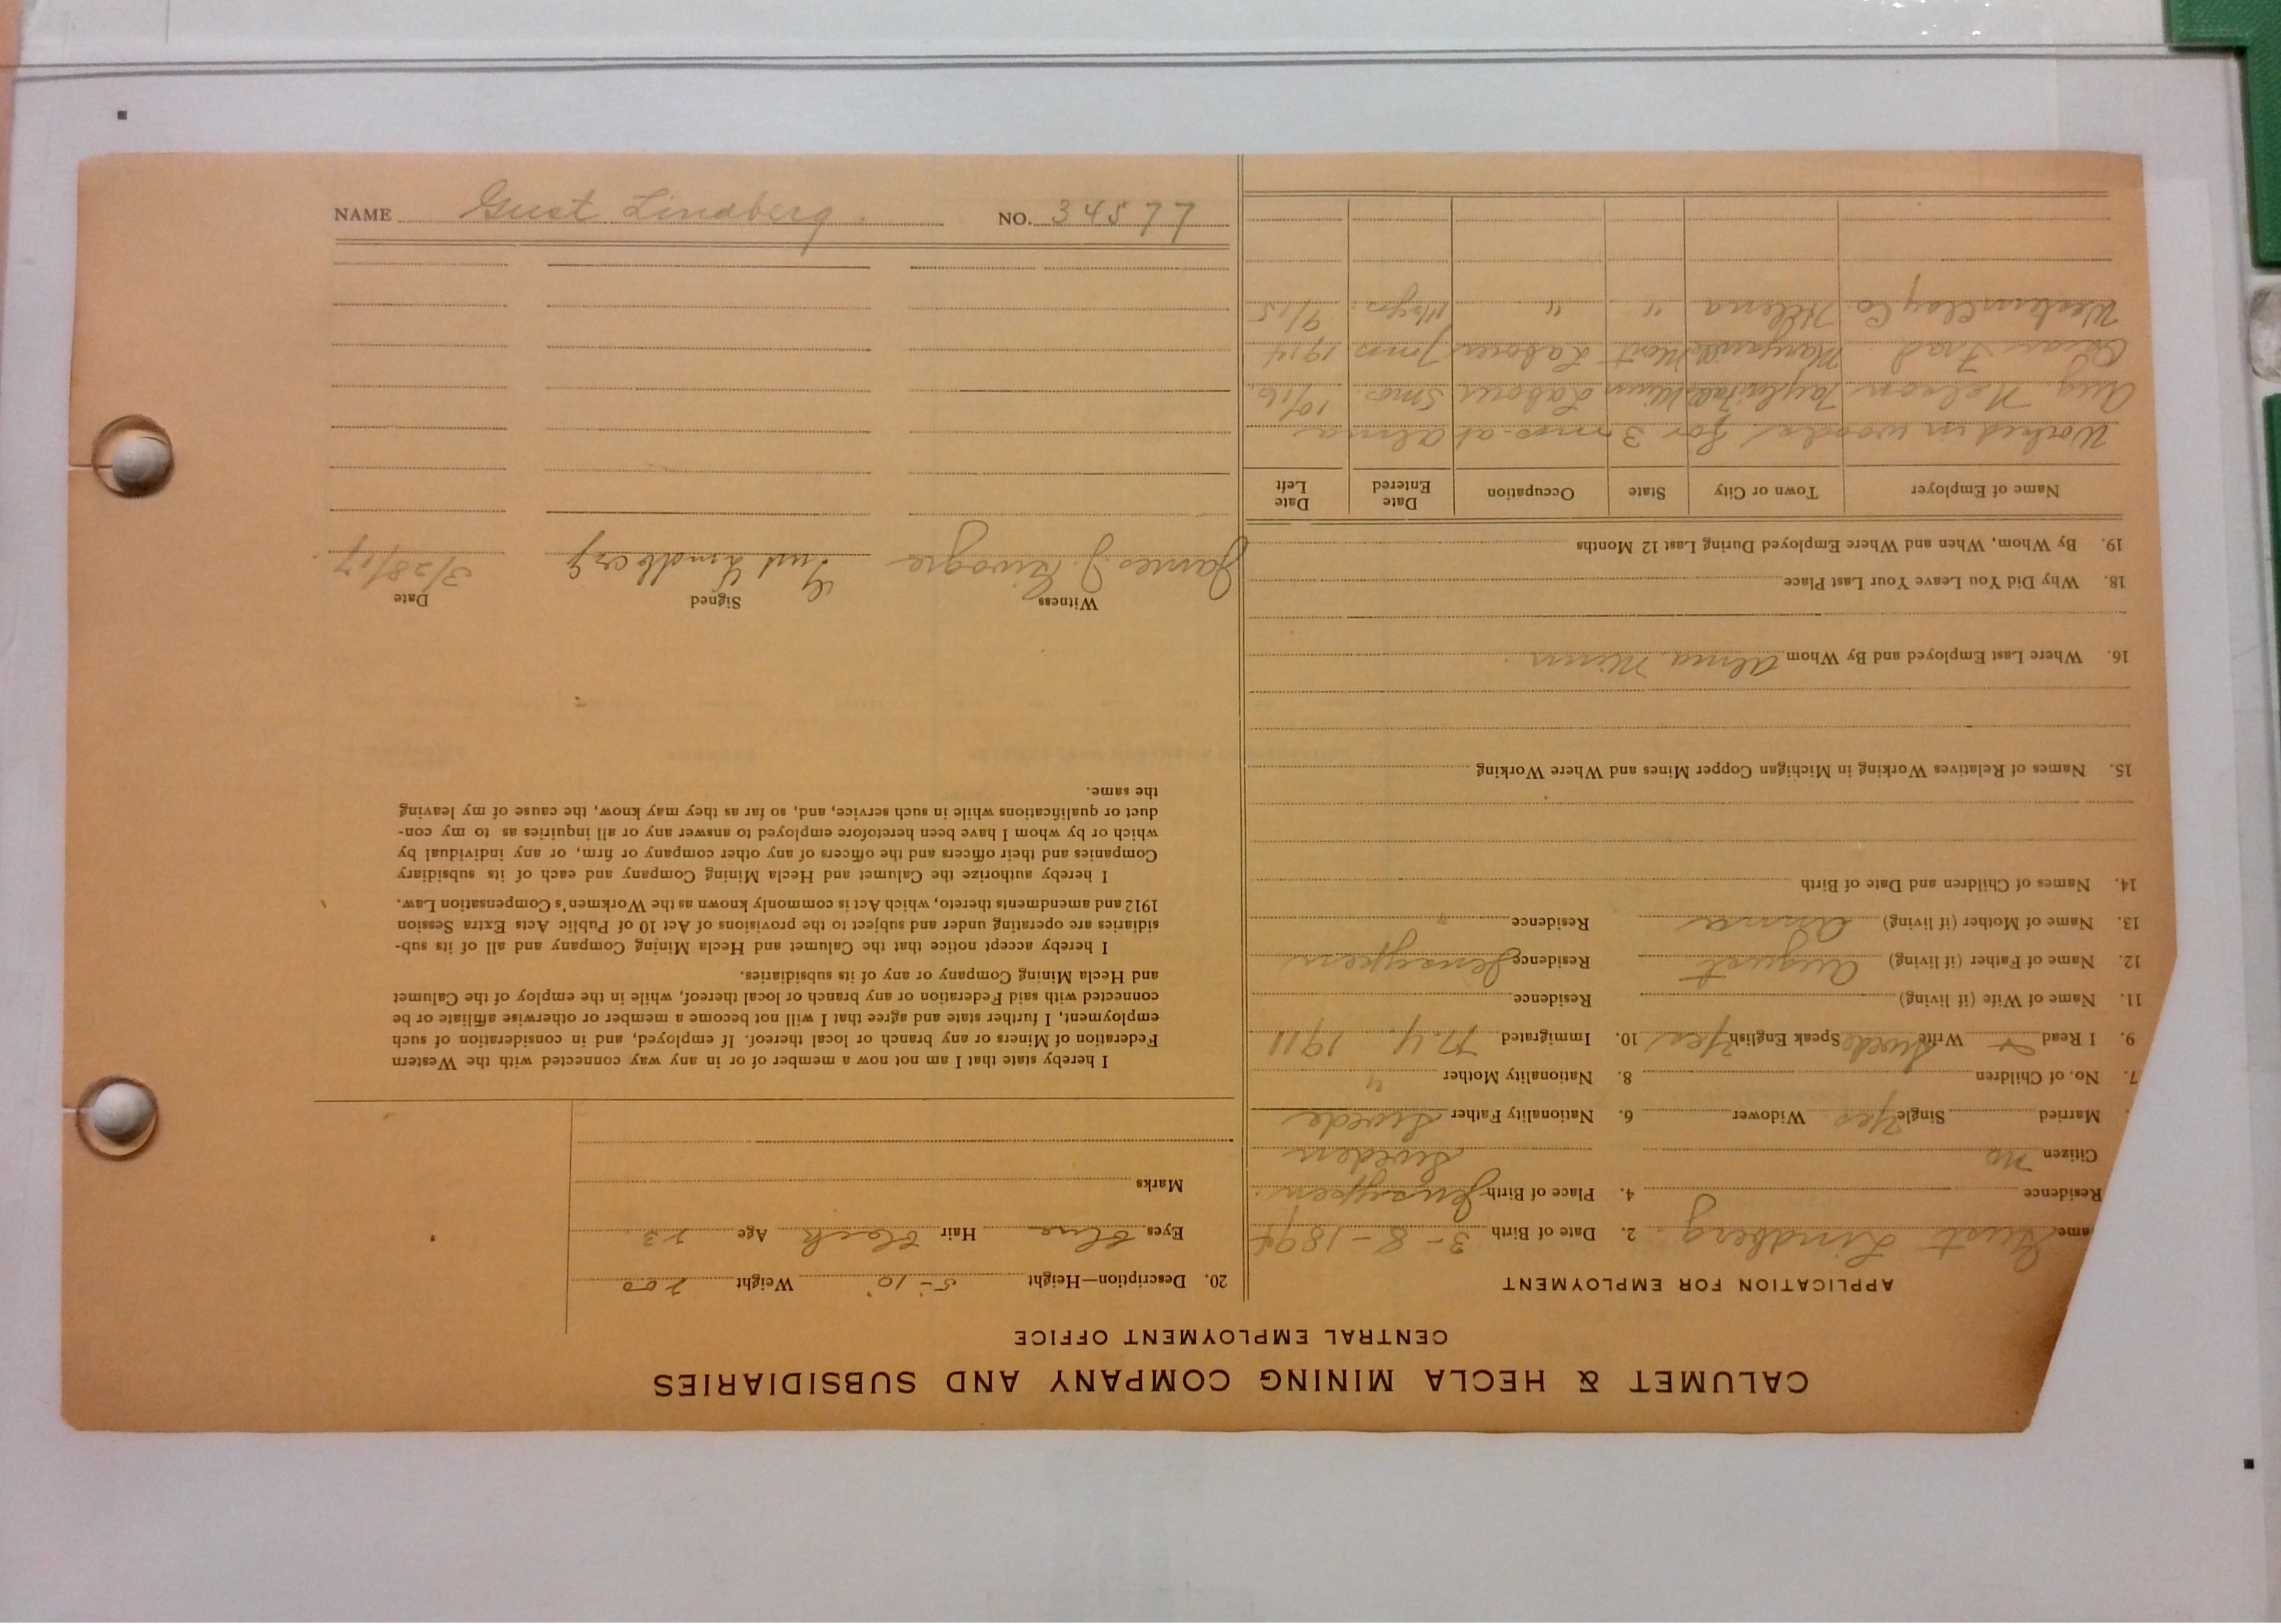 NAME Gust Lindberg. NO. 34577
CALUMET & HECLA MINING COMPANY AND SUBSIDIARIES
CENTRAL EMPLOYMENT OFFICE
APPLICATION FOR EMPLOYMENT
ame Gust Lindberg. 2. Date of Birth 3-8-1894
Residence 4. Place of Birth
Citizen no Sweden
Married Single Yes Widower 6. Nationality Father Swede
7. No. of Children 8. Nationality Mother "
9. I Read Write Swede Speak English Yes 10. Immigrated N.Y. 1911
11. Name of Wife (if living) Residence
12. Name of Father (if living) August Residence
13. Name of Mother (if living) Anna Residence "
14. Names of Children and Date of Birth
15. Names of Relatives Working in Michigan Copper Mines and Where Working
16. Where Last Employed and By Whom Alma Minn.
18. Why Did You Leave Your Last Place
19. By Whom, When and Where Employed During Last 12 Months
Name of Employer Town or City State Occupation Date Entered Date Left
Worked in woods for 3 mos. at Alma
Aug. Nelson Taylors Falls Minn Laborer 5 mos. 10/16
Marysville Mont Laborer 7 mos 1914
Western Clay Co. Helena " " 9/15
20. Description—Height 5'-10" Weight 200
Eyes blue Hair black Age 23
Marks
I hereby state that I am not now a member of or in any way connected with the Western
Federation of Miners or any branch or local thereof. If employed, and in consideration of such
employment, I further state and agree that I will not become a member or otherwise affiliate or be
connected with said Federation or any branch or local thereof, while in the employ of the Calumet
and Hecla Mining Company or any of its subsidiaries.
I hereby accept notice that the Calumet and Hecla Mining Company and all of its sub-
sidiaries are operating under and subject to the provisions of Act 10 of Public Acts Extra Session
1912 and amendments thereto, which Act is commonly known as the Workmen's Compensation Law.
I hereby authorize the Calumet and Hecla Mining Company and each of its subsidiary
Companies and their officers and the officers of any other company or firm, or any individual by
which or by whom I have been heretofore employed to answer any or all inquiries as to my con-
duct or qualifications while in such service, and, so far as they may know, the cause of my leaving
the same.
Witness Signed Date
James J. Gust Lindberg 3/28/17